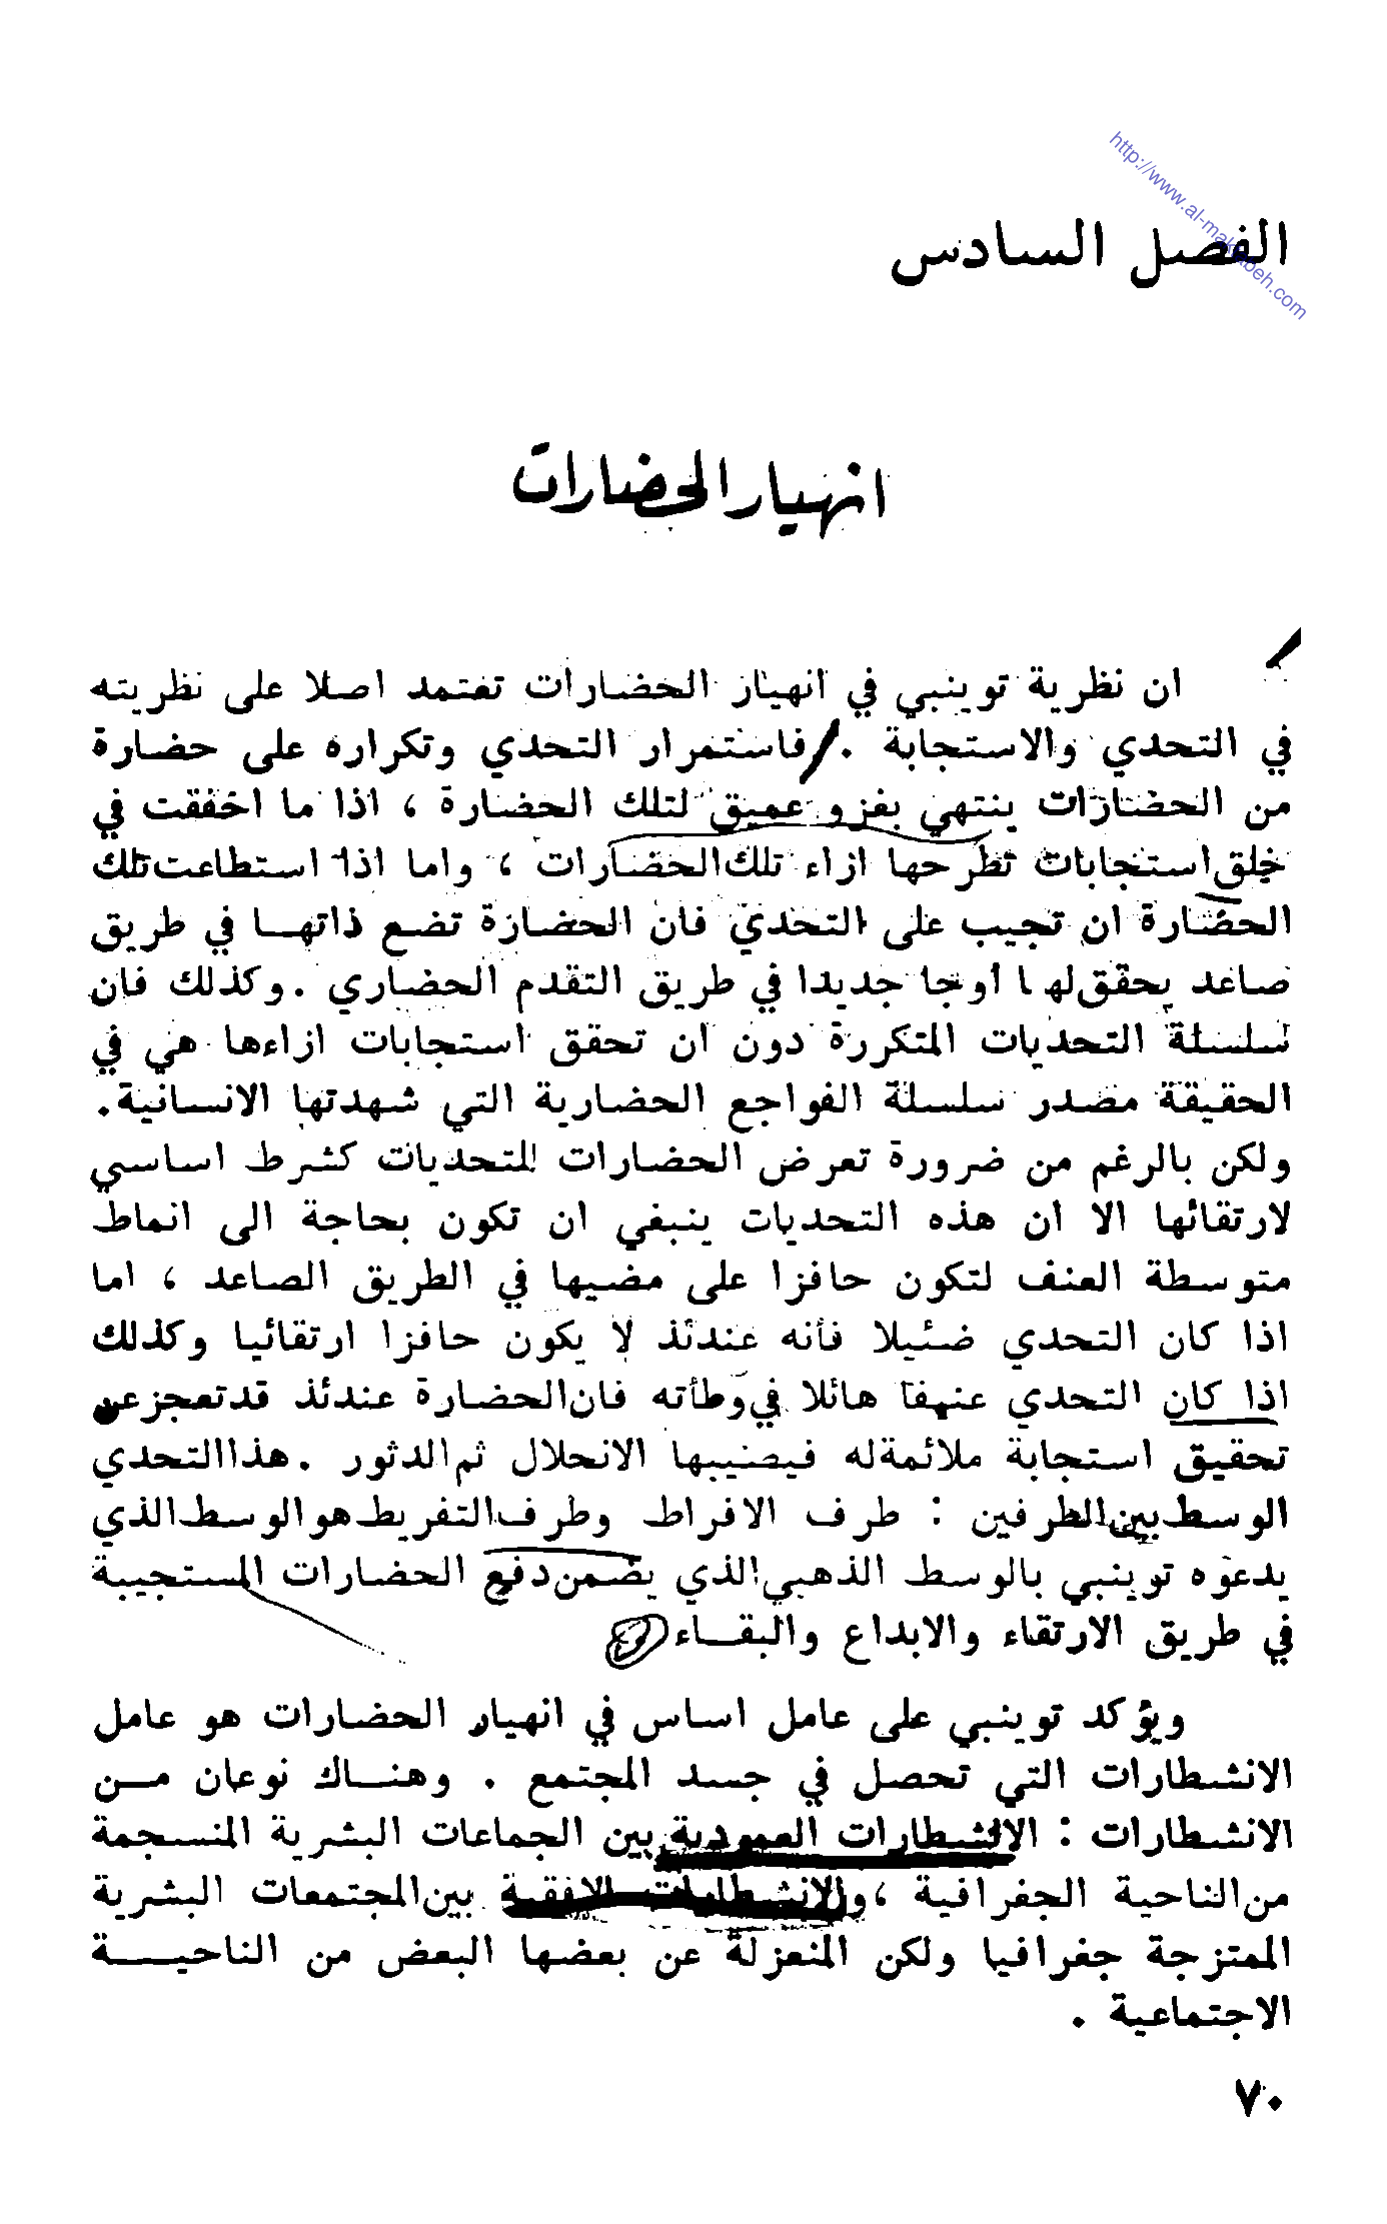 http://www.al-maktabeh.com
الفصل السادس
انهيار الحضارات
ان نظرية توينبي في انهيار الحضارات تعتمد اصلا على نظريته
في التحدي والاستجابة . فاستمرار التحدي وتكراره على حضارة
من الحضارات ينتهي بغزو عميق لتلك الحضارة ، اذا ما اخفقت في
خلق استجابات تطرحها ازاء تلك الحضارات ، واما اذا استطاعت تلك
الحضارة ان تجيب على التحدي فان الحضارة تضع ذاتهــا في طريق
صاعد يحقق لها اوجا جديدا في طريق التقدم الحضاري . وكذلك فان
سلسلة التحديات المتكررة دون ان تحقق استجابات ازاءها هي في
الحقيقة مصدر سلسلة الفواجع الحضارية التي شهدتها الانسانية .
ولكن بالرغم من ضرورة تعرض الحضارات للتحديات كشرط اساسي
لارتقائها الا ان هذه التحديات ينبغي ان تكون بحاجة الى انماط
متوسطة العنف لتكون حافزا على مضيها في الطريق الصاعد ، اما
اذا كان التحدي ضئيلا فأنه عندئذ لا يكون حافزا ارتقائيا وكذلك
اذا كان التحدي عنيفا هائلا في وطأته فان الحضارة عندئذ قد تعجز عن
تحقيق استجابة ملائمة له فيصيبها الانحلال ثم الدثور . هذا التحدي
الوسط بين الطرفين : طرف الافراط وطرف التفريط هو الوسط الذي
يدعوه توينبي بالوسط الذهبي الذي يضمن دفع الحضارات المستجيبة
في طريق الارتقاء والابداع والبقــاء
ويؤكد توينبي على عامل اساس في انهيار الحضارات هو عامل
الانشطارات التي تحصل في جسد المجتمع . وهنــاك نوعان مــن
الانشطارات : الانشطارات العمودية بين الجماعات البشرية المنسجمة
من الناحية الجغرافية ، والانشطارات الافقية بين المجتمعات البشرية
الممتزجة جغرافيا ولكن المنعزلة عن بعضها البعض من الناحيــــة
الاجتماعية .
٧٠